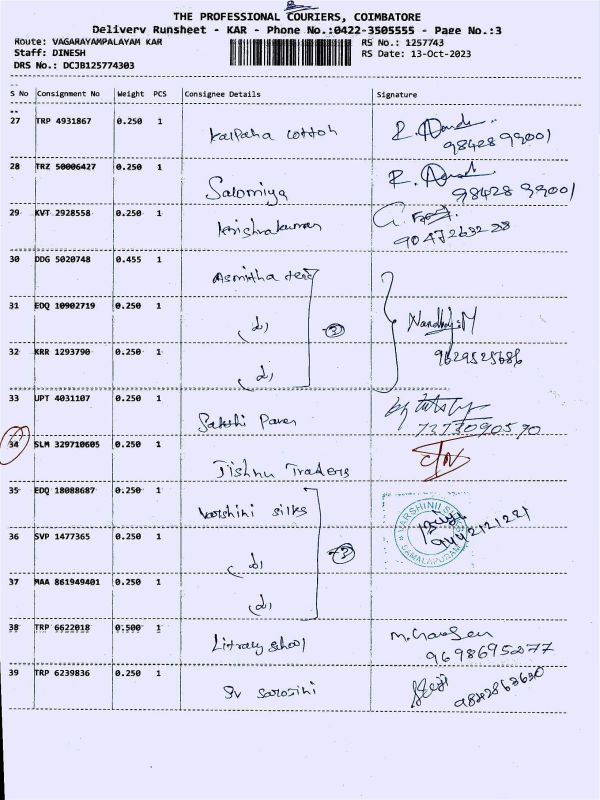 THE PROFESSIONAL COURIERS, COIMBATORE
Delivery Runsheet - KAR - Phone No.:0422-3505555 - Page No.:3
Route: VAGARAYAMPALAYAM KAR RS No.: 1257743
Staff: DINESH RS Date: 13-Oct-2023
DRS No.: DCJB125774303
S No Consignment No Weight PCS Consignee Details Signature
27 TRP 4931867 0.250 1
Kalpana cotton
98428 99001
28 TRZ 50006427 0.250 1
Salomiya
98428 99001
29 KVT 2928558 0.250 1
Krishnakumar
30 DDG 5020748 0.455 1
Asmitha
31 EDQ 10902719 0.250 1
③ Nandhini.M
32 KRR 1293790 0.250 1
9629525686
33 UPT 4031107 0.250 1
Sakthi
7373090570
34 SLM 329710605 0.250 1
Jishnu Traders
35 EDQ 18088687 0.250 1
Varshini silks
VARSHINII SILKS
SAMALAPURAM
9442121221
36 SVP 1477365 0.250 1
③
37 MAA 861949401 0.250 1
38 TRP 6622018 0.500 1
Litracy school
9698695277
39 TRP 6239836 0.250 1
Sv sarosini